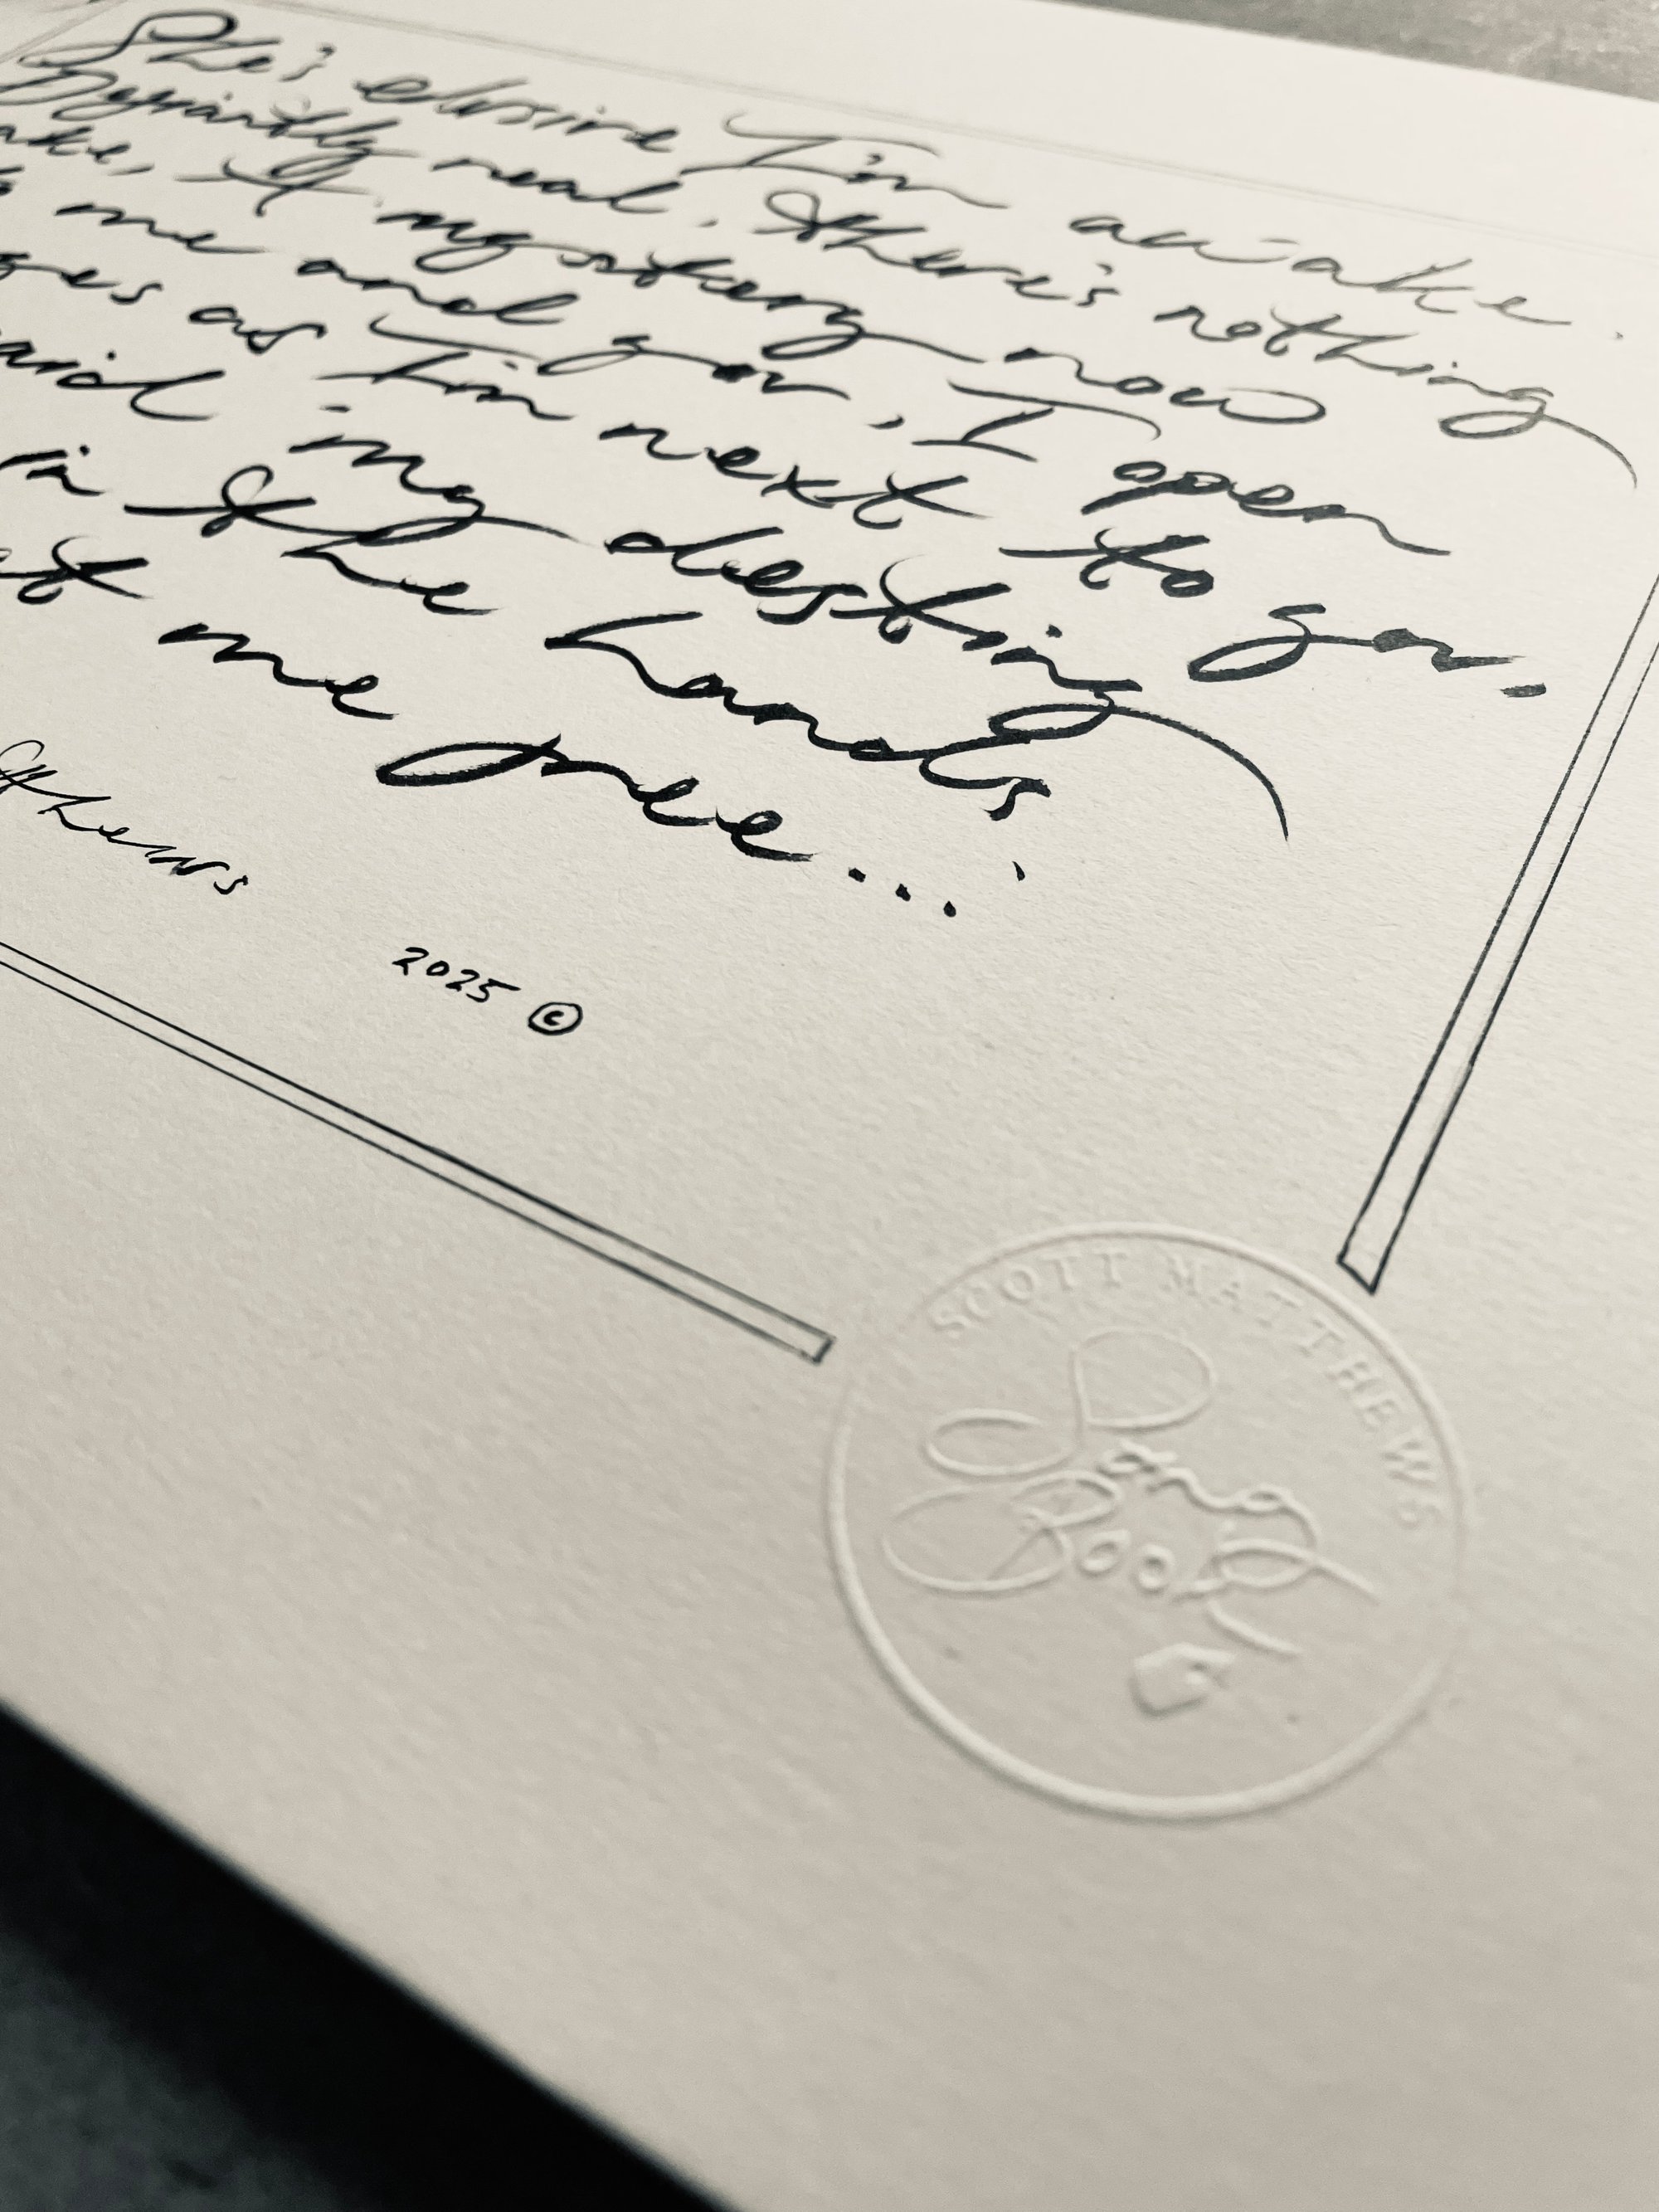 She's elusive I'm awake.
Defiantly real. there's nothing
, A mystery now
me and you, I open
as I'm next to you,
my destiny
in the hands
me free...
2025 ©
SCOTT MATTHEWS
Song
Book